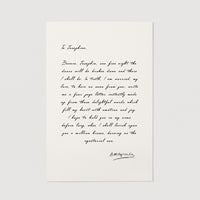 To Josephine,
Beware, Josephine, one fine night the
doors will be broken down and there
I shall be. In truth, I am worried, my
love, to have no news from you; write
me a four page letter instantly made
up from those delightful words which
fill my heart with emotion and joy.
I hope to hold you in my arms
before long, when I shall lavish upon
you a million kisses, burning as the
equatorial sun.